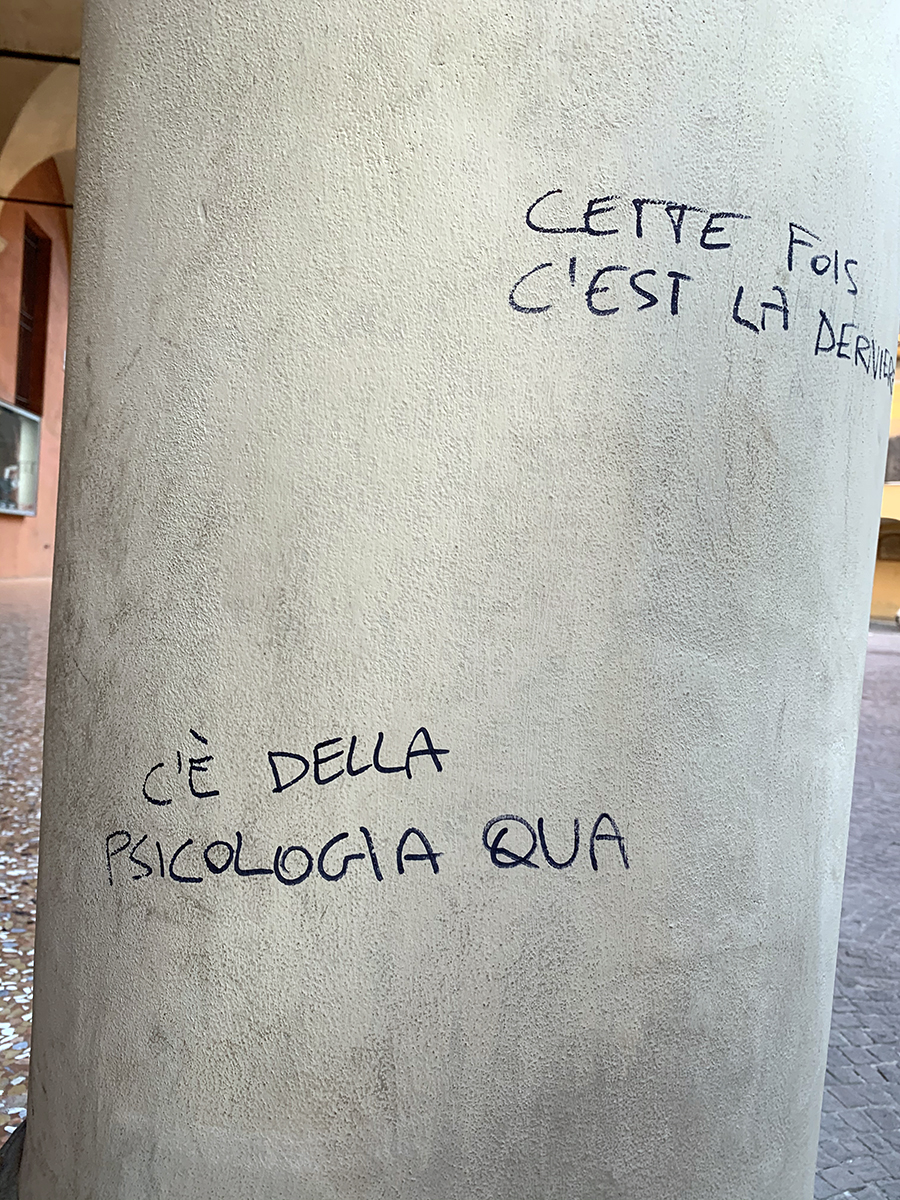 CETTE FOIS
C'EST LA DERNIERE
C'È DELLA
PSICOLOGIA QUA